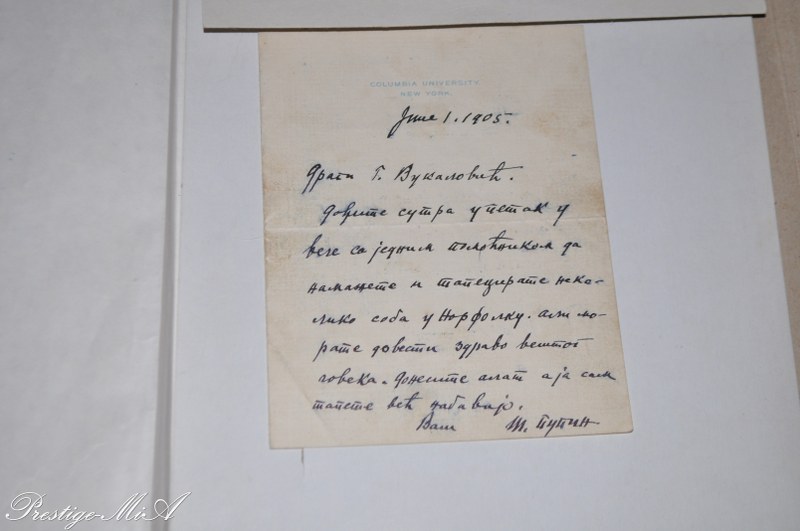 COLUMBIA UNIVERSITY
NEW YORK.
June 1. 1905.
Драги Г. Вукаловић.
Дођите сутра у петак у
вече са једним помоћником да
намажете и тапецирате неко-
лико соба у Норфолку. али мо-
рате довести здраво вештог
човека. Донесите алат а ја сам
тапете већ набавио.
Ваш М. Пупин
Prestige-MiA